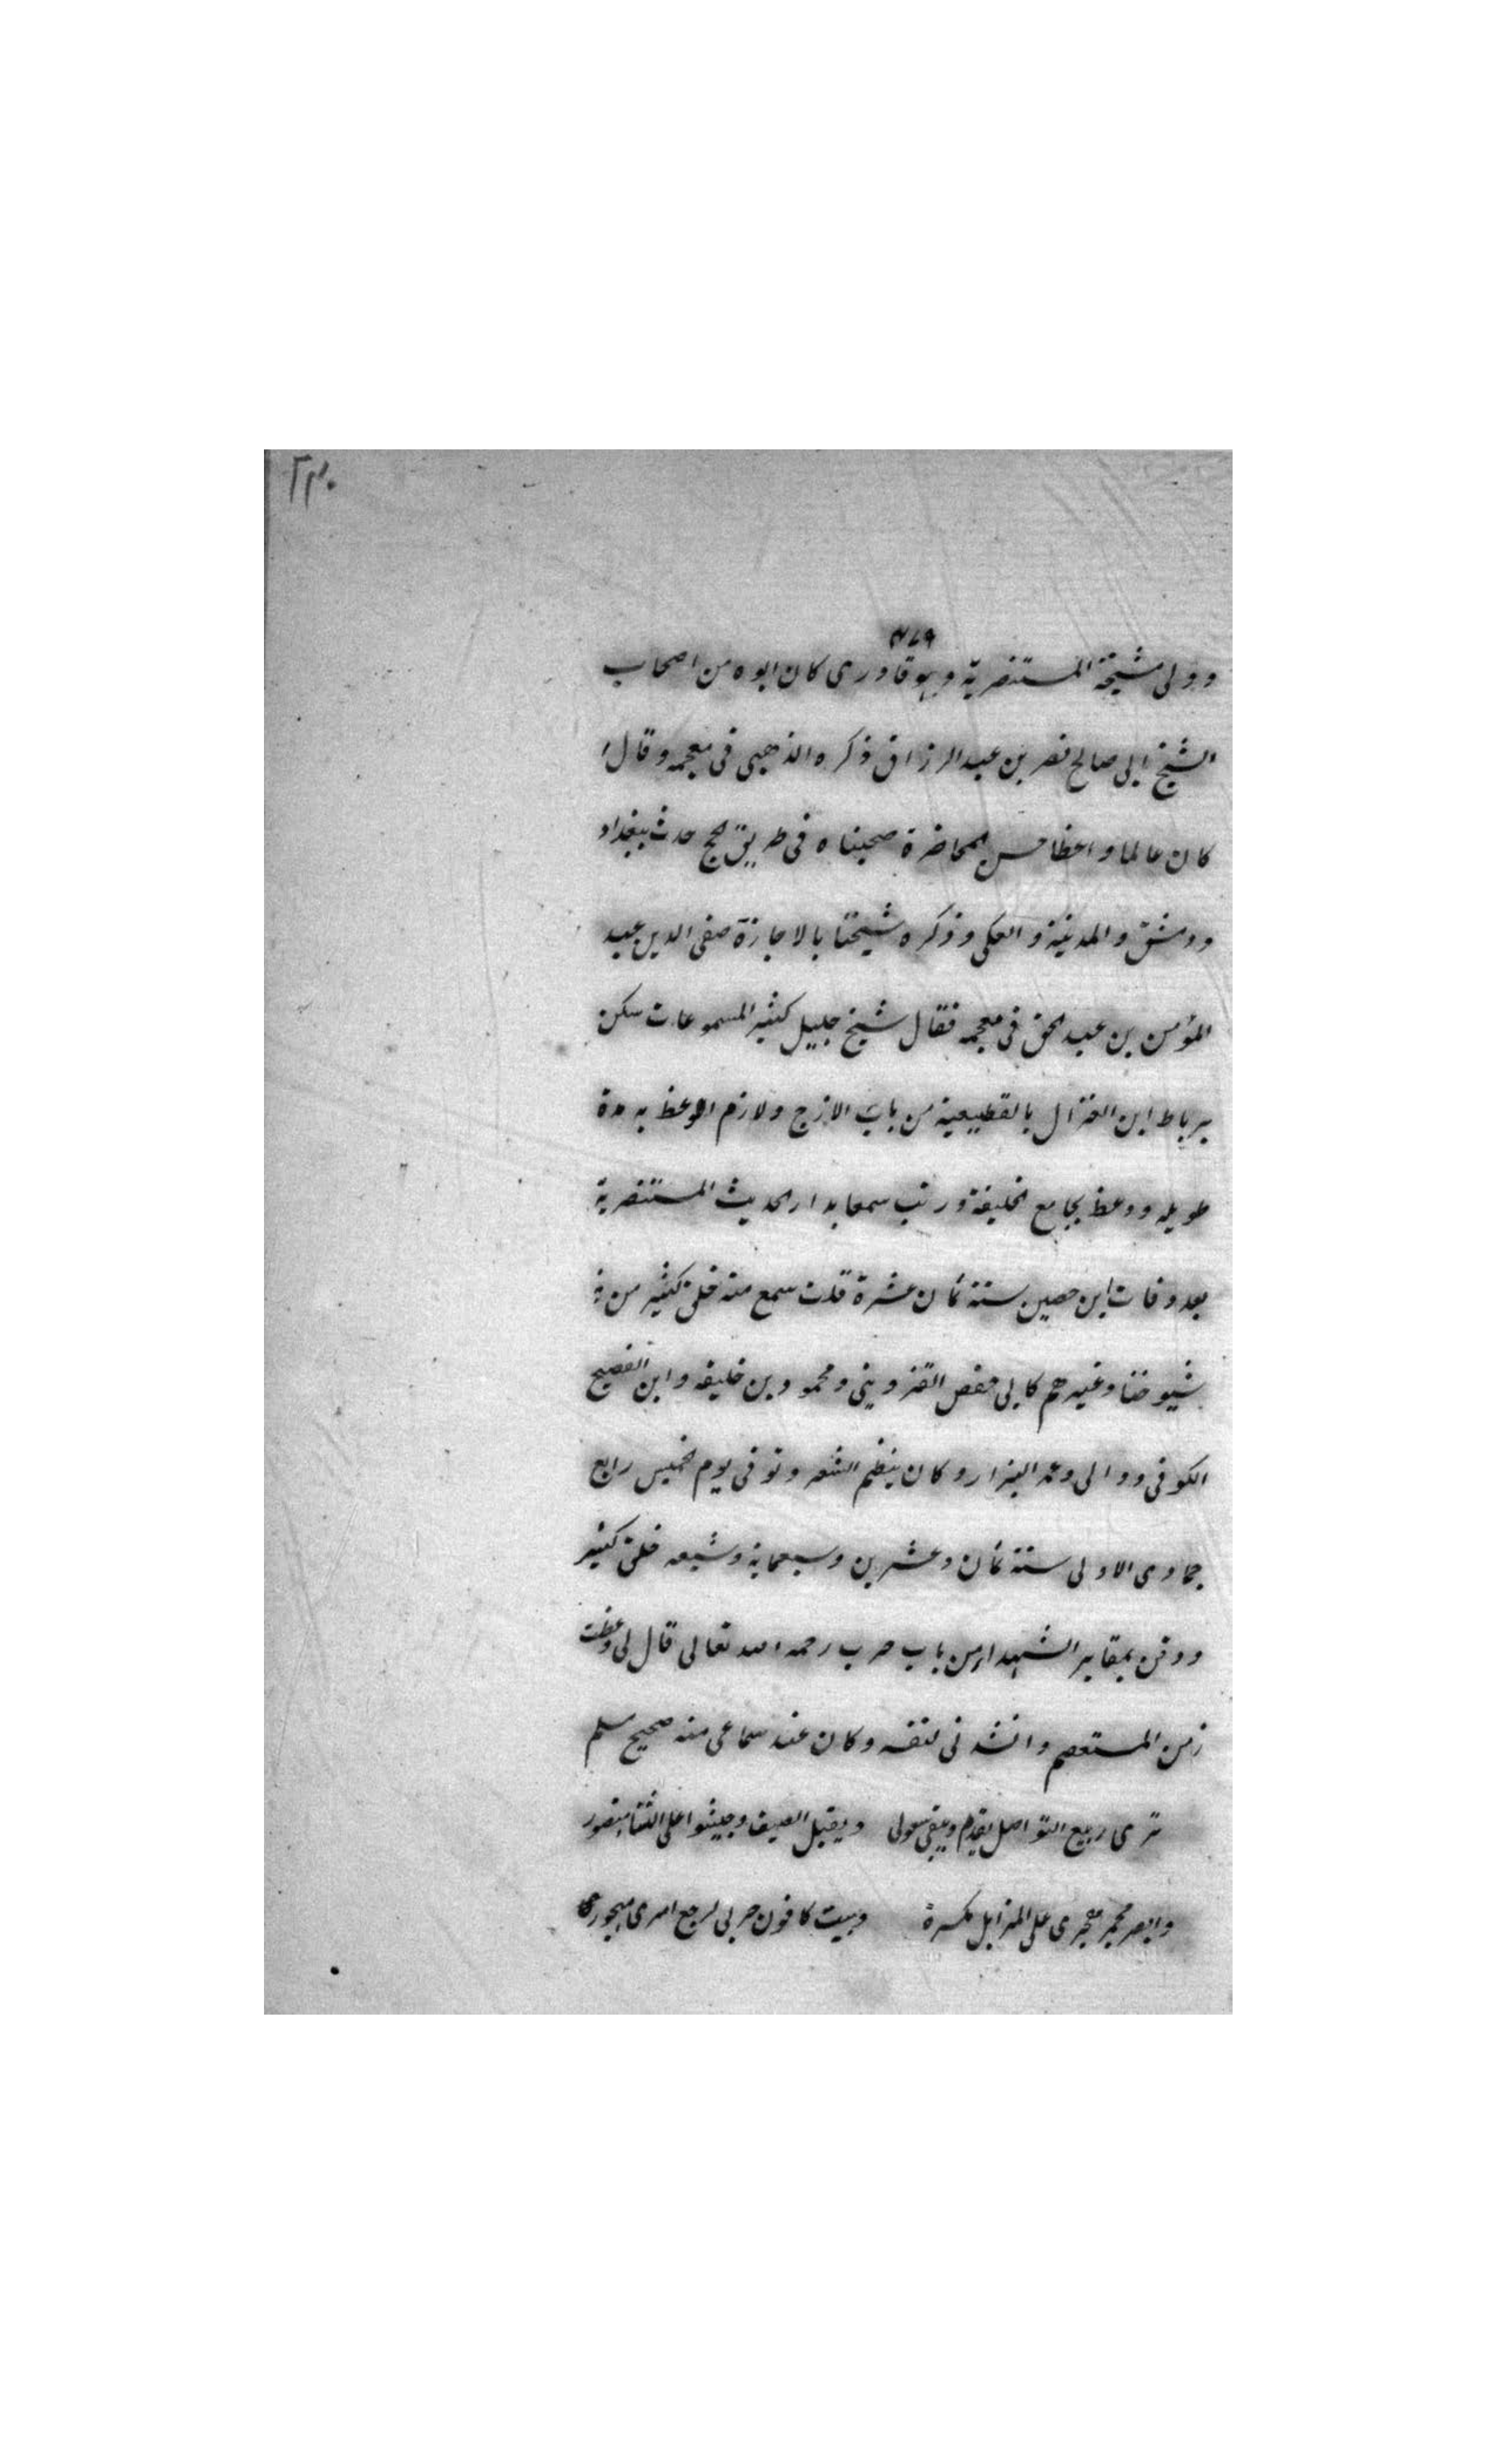 ٢٣٠
٤٧٩
وولی مشیخة المستنصریة وهو قادری کان ابوه من اصحاب
الشیخ ابی صالح نصر بن عبد الرزاق ذکره الذهبی فی معجمه وقال
کان عالما واعظا حسن المحاضرة صحبناه فی طریق الحج حدث ببغداد
ودمشق والمدینة والعکی وذکره شیخنا بالاجازة صفی الدین عبد
المؤمن بن عبد الحق فی معجمه فقال شیخ جلیل کثیر المسموعات سکن
برباط ابن الغزال بالقطیعیة من باب الازج ولازم الوعظ به مدة
طویله ووعظ بجامع الخلیفة ورتب سمعا بدار الحدیث المستنصریة
بعد وفات ابن حصین سنة ثمان عشرة قلت سمع منه خلق کثیر من
شیوخنا وغیرهم کابی حفص القزوینی ومحمود بن خلیفه وابن الفصیح
الکوفی ووالی وعمر البزار وکان ینظم الشعر وتوفی یوم الخمیس رابع
جمادی الاولی سنة ثمان وعشرین وسبعمایة وشیعه خلق کثیر
ودفن بمقابر الشهداء من باب حرب رحمه الله تعالی قال لی وعظت
زمن المستعصم وانشدنی لنفسه وکان عند سماعی منه صحیح مسلم
تری ربیع التواصل یقدم ویبقی سولی ویقبل الصیف وجیشوا علی الشتا منصور
وابصر محمر معجری علی المزابل مکسرة وبیت کانون حربی لرجع امری مهجوری